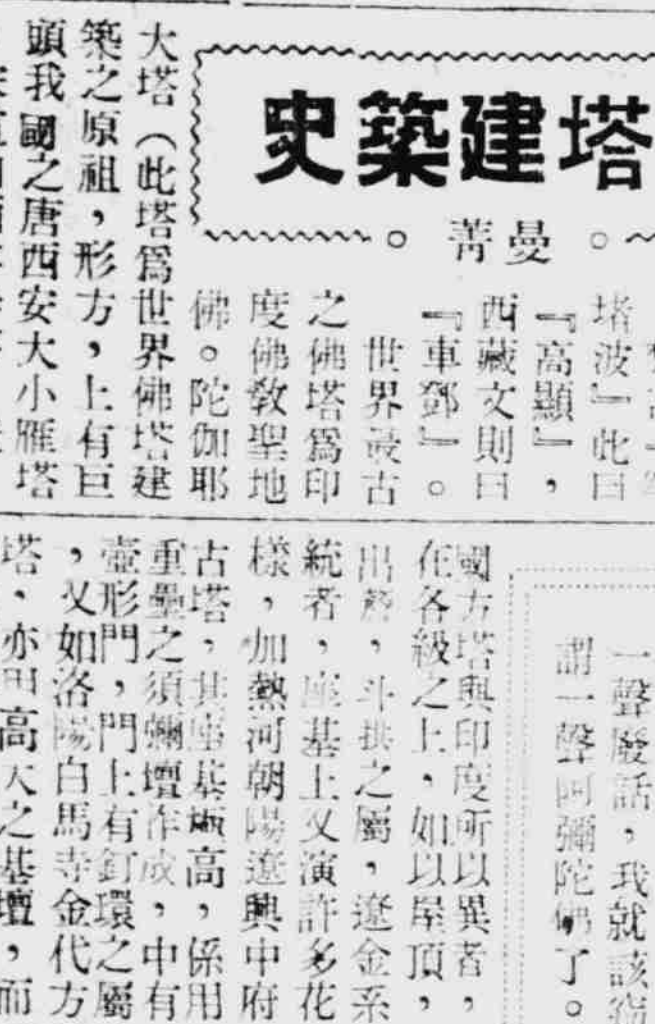 塔建築史
。曼菁。
塔波』此曰
『高顯』，
西藏文則曰
『車鄧』。
世界最古
之佛塔爲印
度佛教聖地
佛。陀伽耶
大塔（此塔爲世界佛塔建
築之原祖，形方，上有巨
頭我國之唐西安大小雁塔
一聲廢話，我就該
謂一聲阿彌陀佛了。
國方塔與印度所以異者，
在各級之上，如以屋頂，
出簷，斗拱之屬，遼金系
統者，座基上又演許多花
樣，加熱河朝陽遼興中府
古塔，其座基頗高，係用
重壘之須彌壇作成，中有
壼形門，門上有釘環之屬
，又如洛陽白馬寺金代方
塔，亦用高大之基壇，而